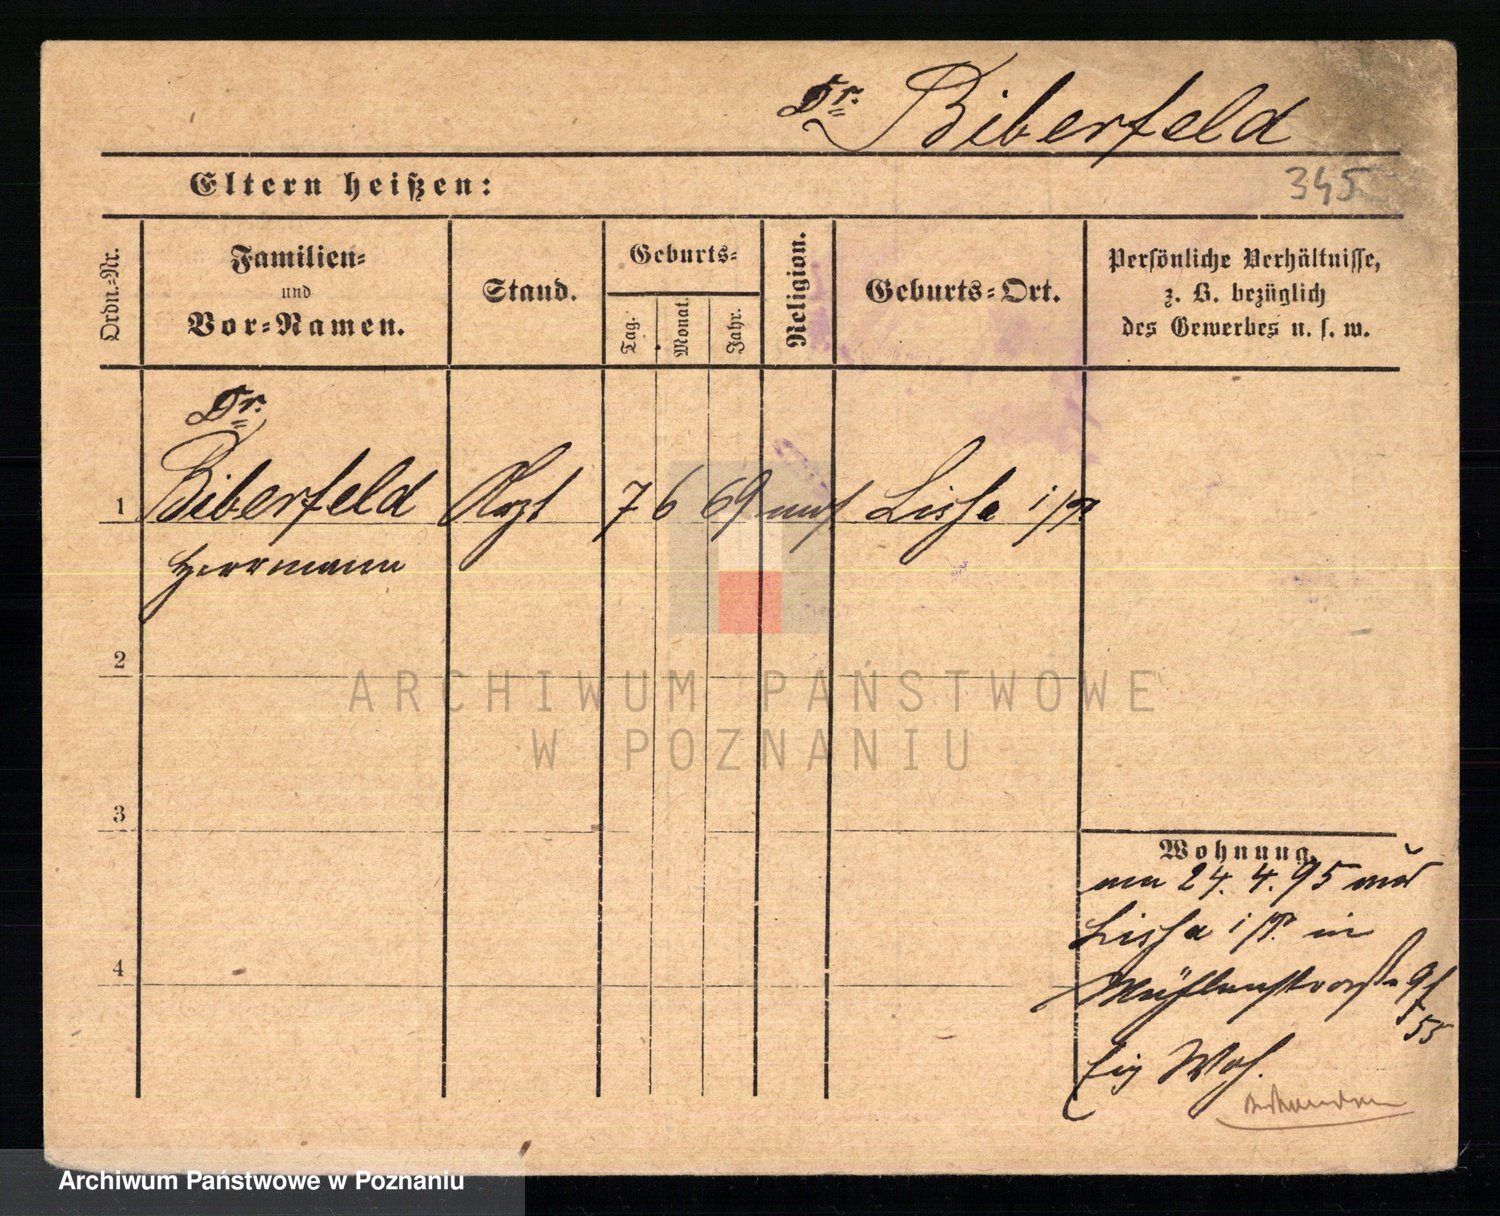 Dr. Biberfeld
345
Eltern heißen:
Ordn.-Nr.
Familien-
und
Vor-Namen.
Stand.
Geburts-
Tag.
Monat.
Jahr.
Religion.
Geburts-Ort.
Persönliche Verhältnisse,
z. B. bezüglich
des Gewerbes u. s. w.
Dr.
1 Biberfeld Arzt 7 6 69 mos Lissa i/P
Herrmann
2
3
4
Wohnung.
24. 4. 95
Lissa i/P. in
Mühlenstrasse 9
55
Eig Woh.
ARCHIWUM PAŃSTWOWE
W POZNANIU
Archiwum Państwowe w Poznaniu